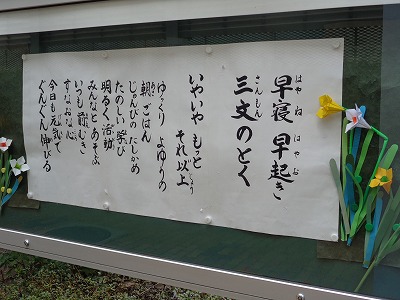 はや ね はや お
早寝 早起き
さんもん
三文のとく
いやいや もっと それ以上
ゆっくり よゆうの
朝ごはん
じゅんびの たしかめ
たのしい 学び
明るく 活動
みんなと あそぶ
いつも 前むき
すなおな心
今日も 元気で
ぐんぐん 伸びる